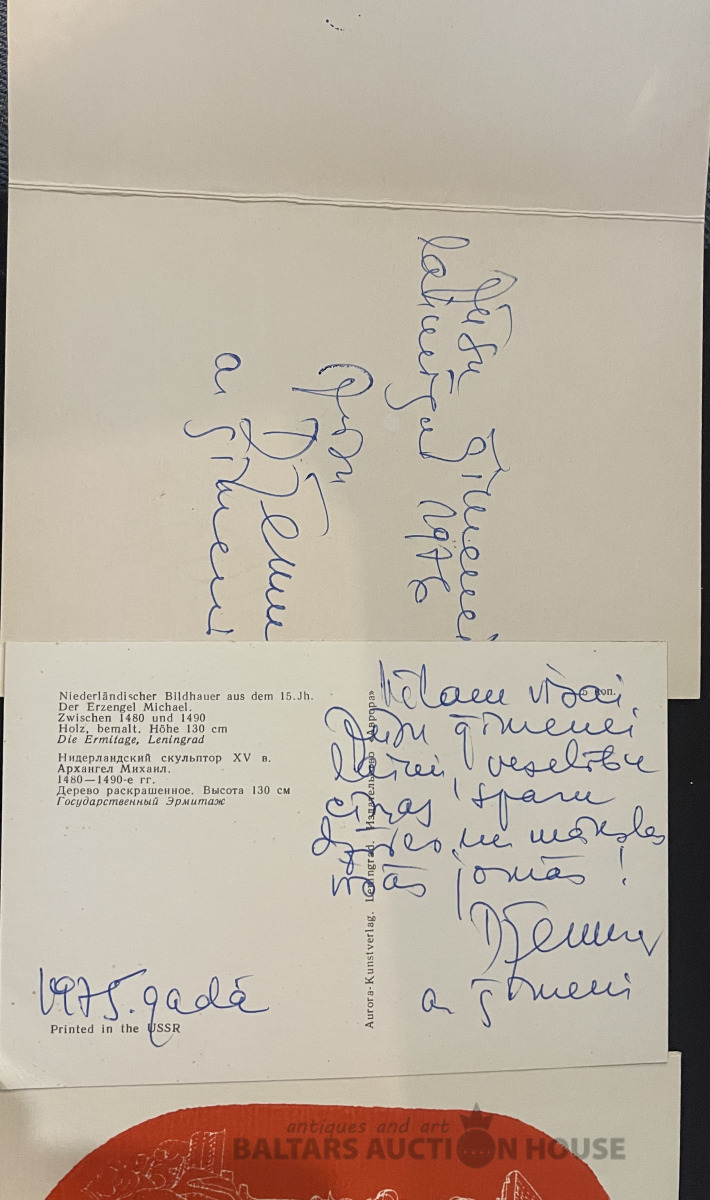 Jūsu ģimenei
laimīgu 1976
Jūsu
Džemma
ar ģimeni
Niederländischer Bildhauer aus dem 15.Jh.
Der Erzengel Michael.
Zwischen 1480 und 1490
Holz, bemalt. Höhe 130 cm
Die Ermitage, Leningrad
Нидерландский скульптор XV в.
Архангел Михаил.
1480—1490-е гг.
Дерево раскрашенное. Высота 130 см
Государственный Эрмитаж
Aurora-Kunstverlag. Leningrad. Издательство «Аврора»
5 коп.
Vēlam visai
Jūsu ģimenei
laimi, veselību
cīņas sparu
dzīves un mākslas
visās jomās!
Džemma
ar ģimeni
1975. gadā
Printed in the USSR
antiques and art
BALTARS AUCTION HOUSE